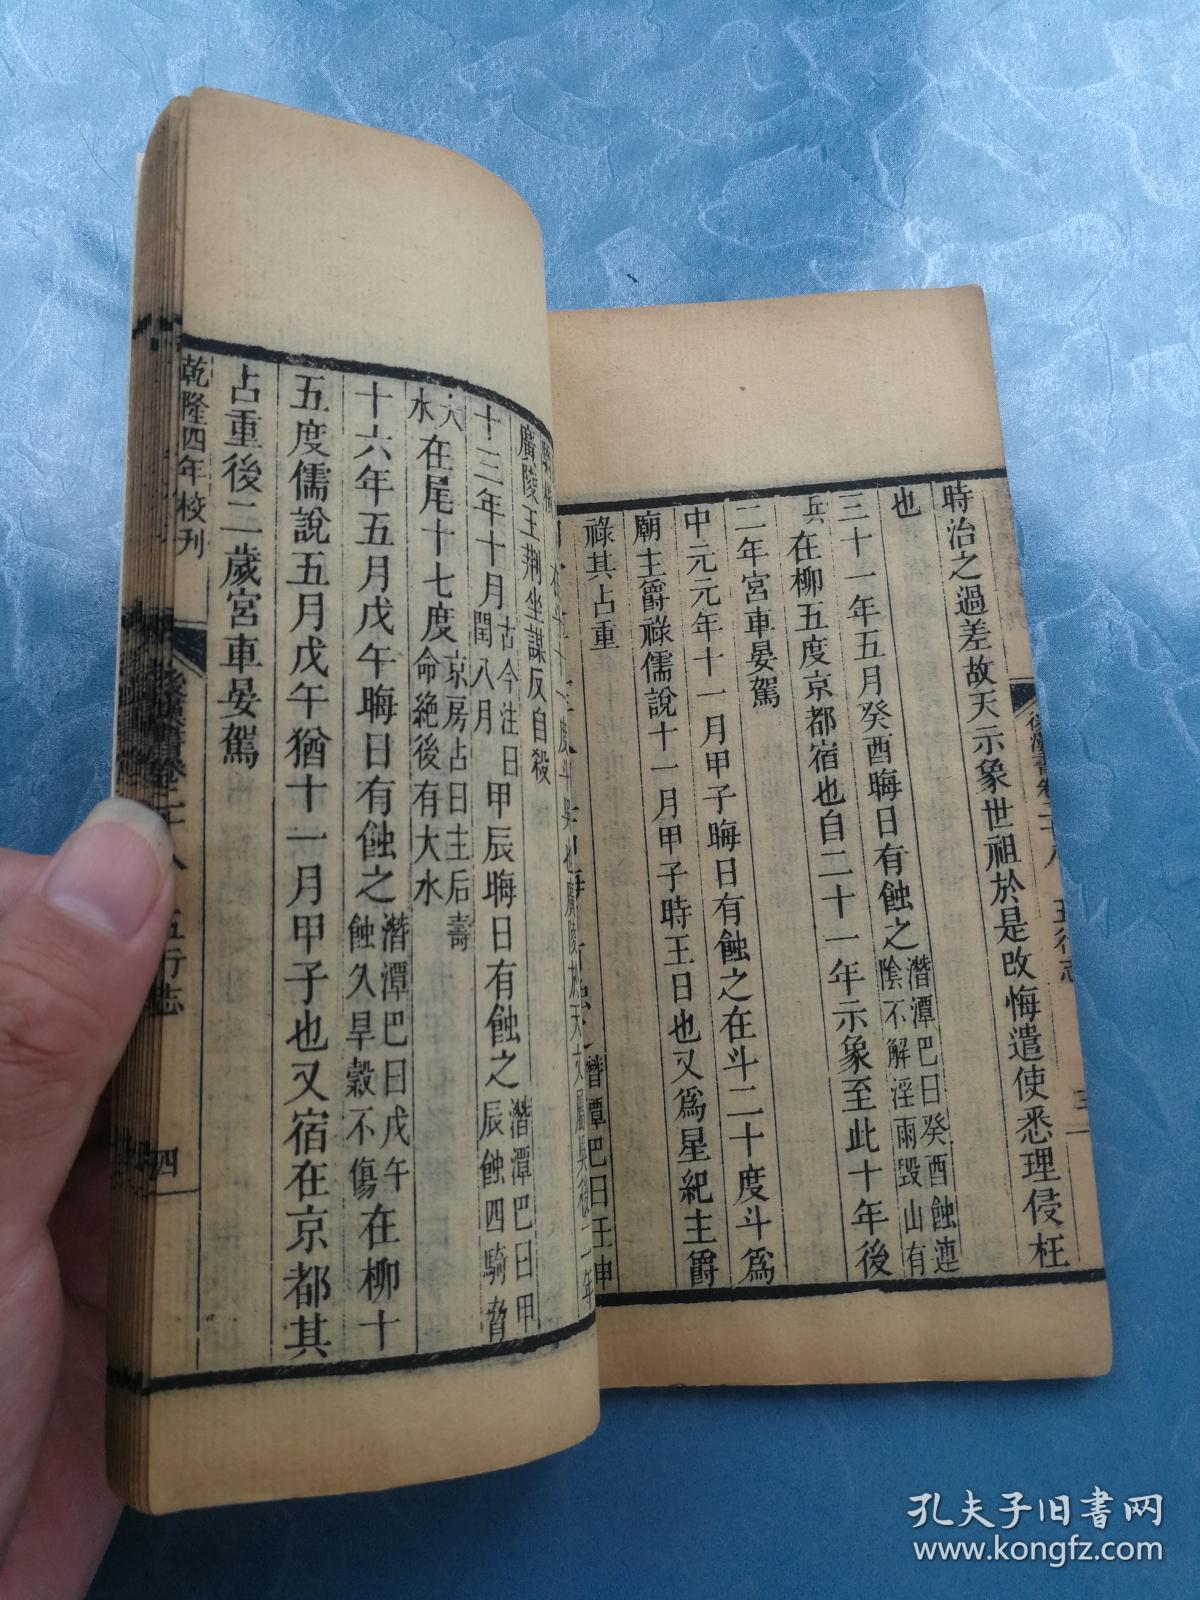 時治之過差故天示象世祖於是改悔遣使悉理侵枉
也
三十一年五月癸酉晦日有蝕之潛潭巴曰癸酉蝕連
陰不解淫雨毀山有
兵在柳五度京都宿也自二十一年示象至此十年後
二年宮車晏駕
中元元年十一月甲子晦日有蝕之在斗二十度斗為
廟主爵祿儒說十一月甲子時王日也又為星紀主爵
祿其占重
潛潭巴曰壬申
廣陵王荆坐謀反自殺
十三年十月古今注曰
閏八月
甲辰晦日有蝕之潛潭巴曰甲
辰蝕四騎脅
大
水在尾十七度京房占曰主后壽
命絕後有大水
十六年五月戊午晦日有蝕之潛潭巴曰戊午
蝕久旱穀不傷在柳十
五度儒說五月戊午猶十一月甲子也又宿在京都其
占重後二歲宮車晏駕
乾隆四年校刊
後漢書卷二十八 五行志 四
孔夫子旧書网
www.kongfz.com